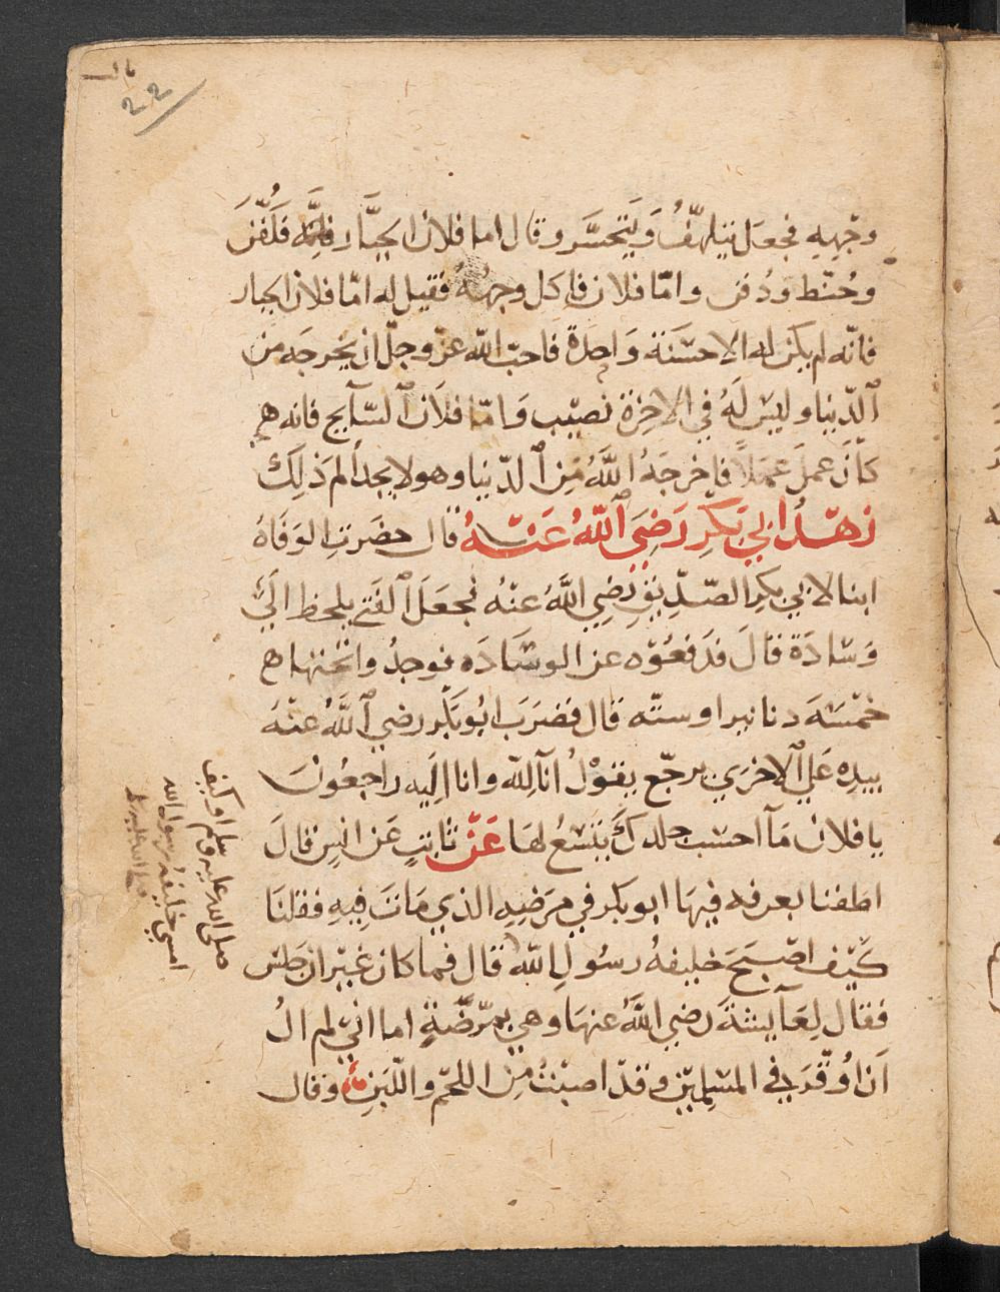 22
وجهه فجعل يتلهّفُ وَيَتَحسَّر وقال اما فلان الجبَّار فلُفّفَ
وحُنّط ودُفن وامّا فلان فاكل وجهه فقيل له امّا فلان الجبار
فانّه لم يكن له الا حسَنَة وَاحِدة فاحبّ الله عزّ وجلّ ان يخرجَه من
الدّنيا وليسَ لَهُ في الاخِرَة نصيْب وَامّا فلَان السّآيح فانه
كانَ عملَ عمَلاً فاخرجَهُ اللَّهُ مِن الدّنيا وهو لا يجد ألم ذلِكَ
زهْد أبي بَكرِ رَضيَ اللّهُ عَنهُ قال حضَرتِ الوَفَاةُ
ابنا لابي بكرِ الصّدّيقِ رضِي اللَّهُ عنهُ فجعَلَ الفَتى يلحظ الَى
وَسَادَة قالَ فدَفعُوْه عن الوسَادَه فوجدُوا تحتهَا
خمْسَهَ دنانير او ستّه قال فضرَبَ ابُو بَكْر رضي اللَّهُ عنهُ
بيدِه عَلى الاخرَى يرجّع يقوْلُ انّا لِلّه وانا الَيه راجعُونَ
يا فلان مَا احسَب جلدكَ يتسع لهَا عَنْ ثابتٍ عَن انسٍ قالَ
اطفنا بغرفه فيهَا ابو بكر في مرَضِهِ الذي مَاتَ فِيهِ فقلنَا
كَيْف اصْبَحَ خليفهُ رسُولِ اللّه قال فما كان غيْر ان جلس
فقال لِعَآيشةَ رَضي اللَّهُ عنهَا وهي تمرّضُهُ اما انّى لم الُ
اَن اُوَفّرَ فى المسْلِمين وقدْ اصبْتُ مِن اللحْم واللّبَنِ وقال
صلى الله عليه وسلم او كيف
امسى خليفهُ رسول الله